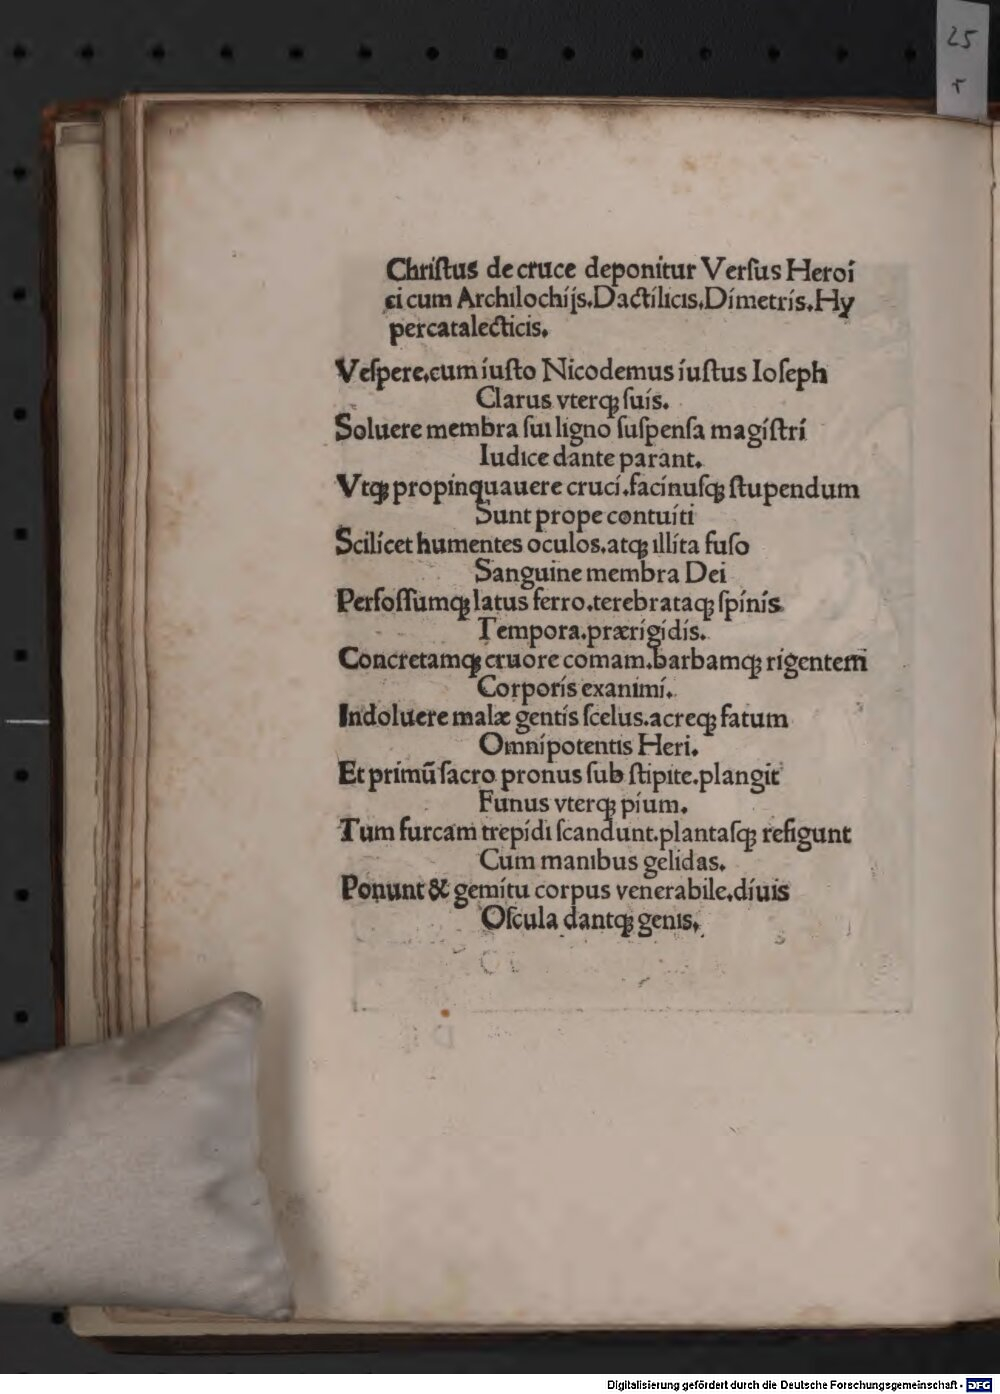 25
r
Chriſtus de cruce deponitur Verſus Heroi
ci cum Archilochijs.Dactilicis.Dimetris.Hy
percatalecticis.
Veſpere.cum iuſto Nicodemus iuſtus Ioſeph
Clarus vterqꝫ ſuis.
Soluere membra ſui ligno ſuſpenſa magiſtri
Iudice dante parant.
Vtqꝫ propinquauere cruci.facinuſqꝫ ſtupendum
Sunt prope contuiti
Scilicet humentes oculos.atqꝫ illita fuſo
Sanguine membra Dei
Perfoſſumqꝫ latus ferro.terebrataqꝫ ſpinis
Tempora.prærigidis.
Concretamqꝫ cruore comam.barbamqꝫ rigentem
Corporis exanimi.
Indoluere malæ gentis ſcelus.acreqꝫ fatum
Omnipotentis Heri.
Et primū ſacro pronus ſub ſtipite.plangit
Funus vterqꝫ pium.
Tum furcam trepidi ſcandunt.plantaſqꝫ refigunt
Cum manibus gelidas.
Ponunt & gemitu corpus venerabile.diuis
Oſcula dantqꝫ genis.
Digitalisierung gefördert durch die Deutsche Forschungsgemeinschaft - DFG